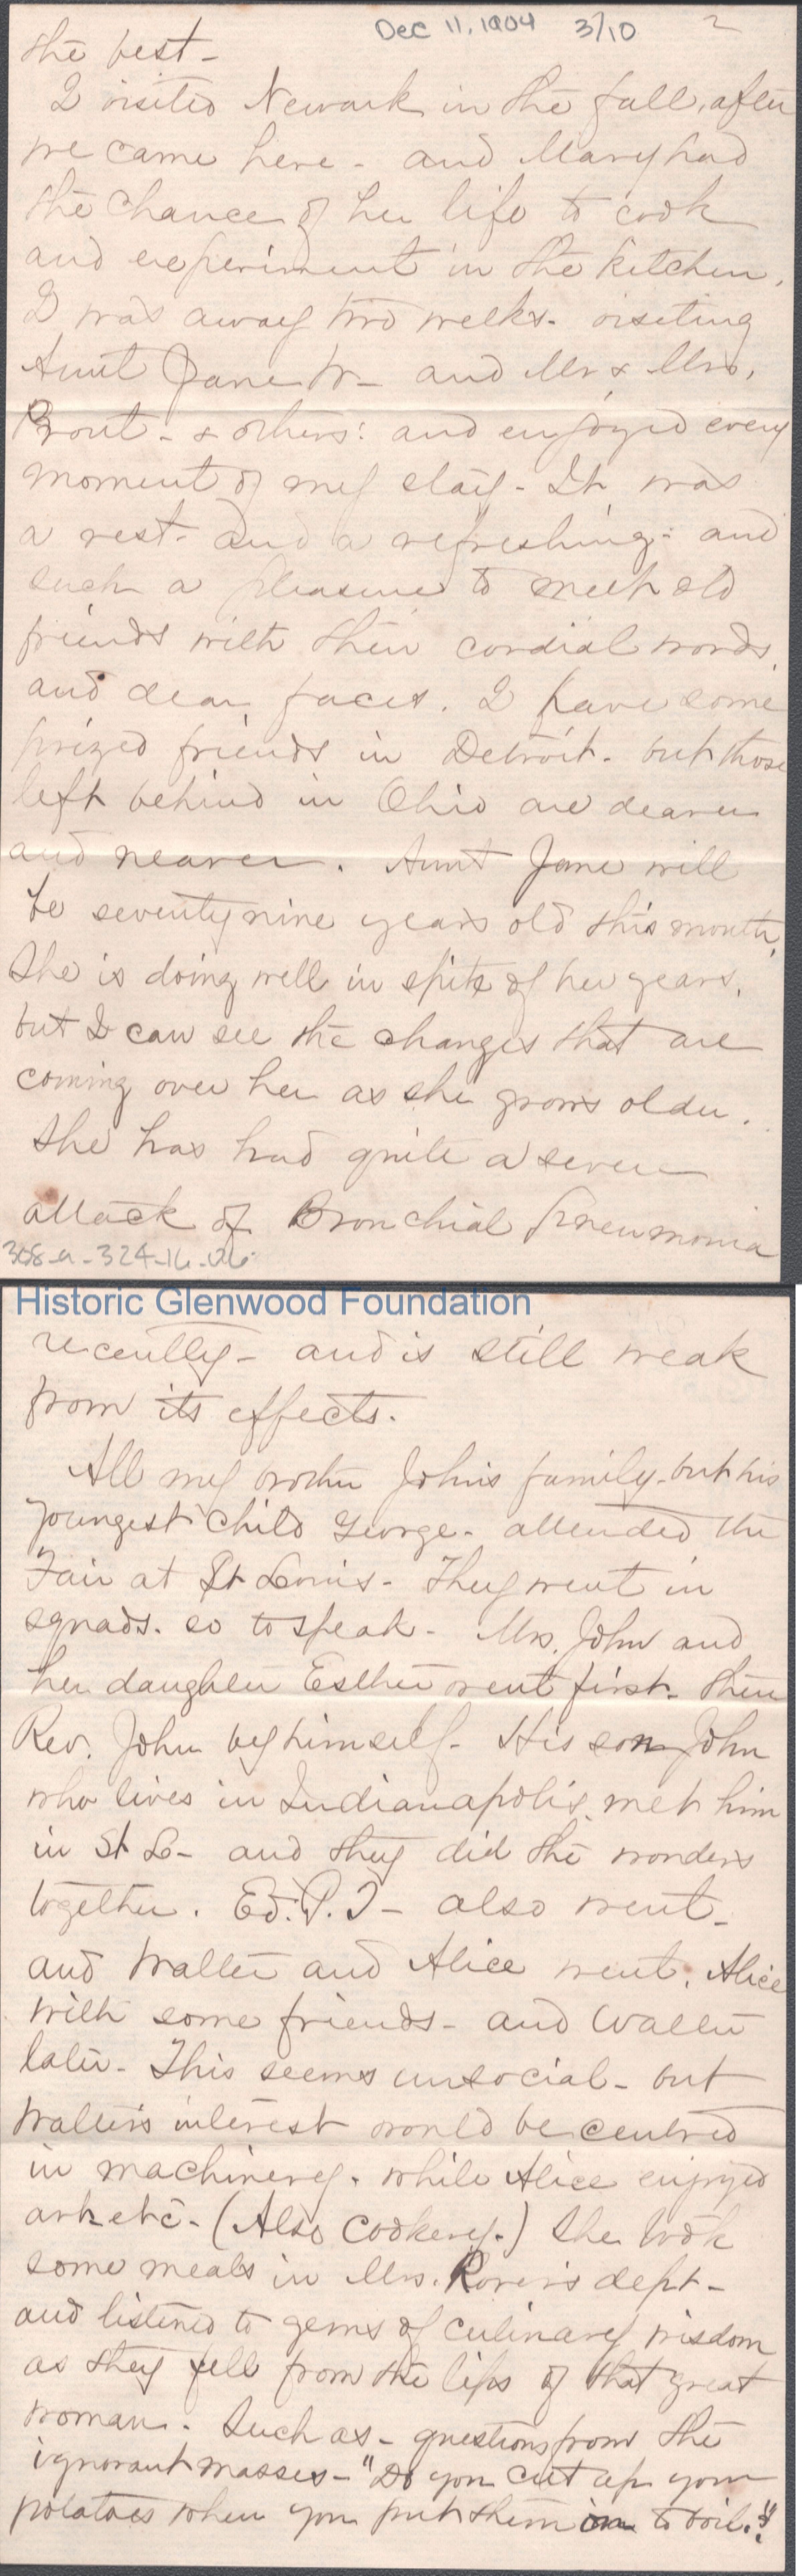 Dec 11, 1904 3/10 2
the best -
I visited Newark in the fall, after
we came here - and Mary had
the chance of her life to cook
and experiment in the kitchen.
I was away two weeks - visiting
Aunt Jane W - and Mr & Mrs.
Prout - & others: and enjoyed every
moment of my stay - It was
a rest - and a refreshing - and
such a pleasure to meet old
friends with their cordial words
and dear faces. I have some
prized friends in Detroit - but those
left behind in Ohio are dearer
and nearer. Aunt Jane will
be seventy nine years old this month,
She is doing well in spite of her years,
but I can see the changes that are
coming over her as she grows older.
She has had quite a severe
attack of Bronchial Pneumonia
308-a-324-16-06
Historic Glenwood Foundation
recently - and is still weak
from its effects.
All my brother John's family - but his
youngest child George - attended the
Fair at St Louis - They went in
squads - so to speak - Mrs. John and
her daughter Esther went first - then
Rev. John by himself - His son John
who lives in Indianapolis, met him
in St Lo - and they did the wonders
together. Ed. P. T - also went -
and Walter and Alice went. Alice
with some friends - and Walter
later - This seems unsocial - but
Walter's interest would be centred
in machinery - while Alice enjoyed
art etc - (Also cookery.) She took
some meals in Mrs. Rorer's dept -
and listened to gems of culinary wisdom
as they fell from the lips of that great
woman. Such as - questions from the
ignorant masses - "Do you cut up your
potatoes when you put them on to boil?"